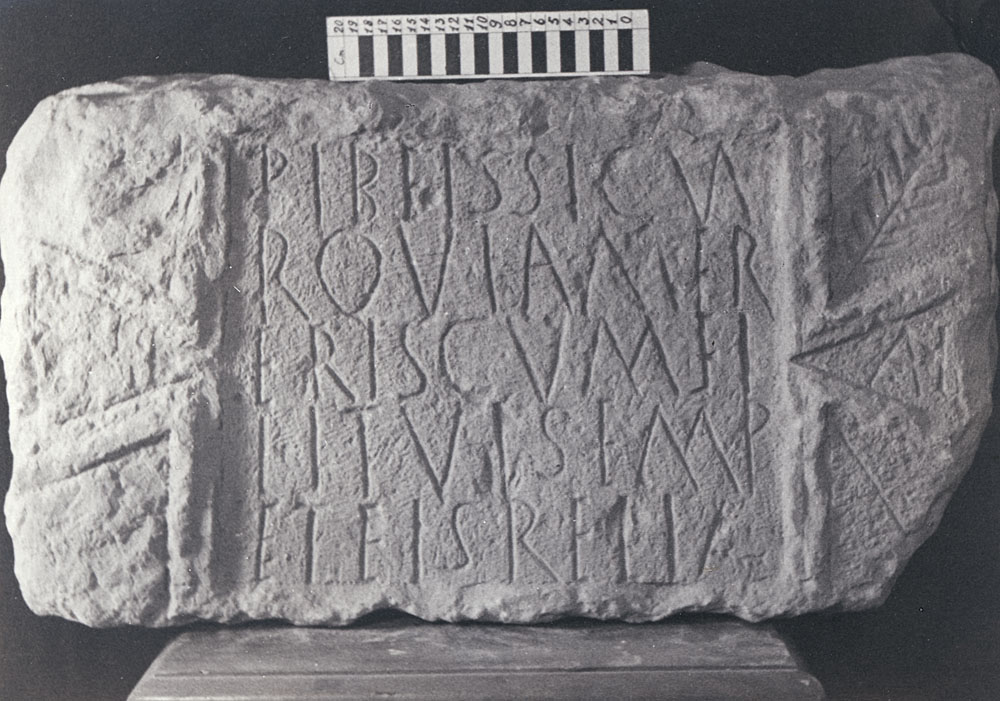 Cm 20 19 18 17 16 15 14 13 12 11 10 9 8 7 6 5 4 3 2 1 0
PIBEISSICVA
ROVIAMER
ERISCVMEI
LITVISEMP